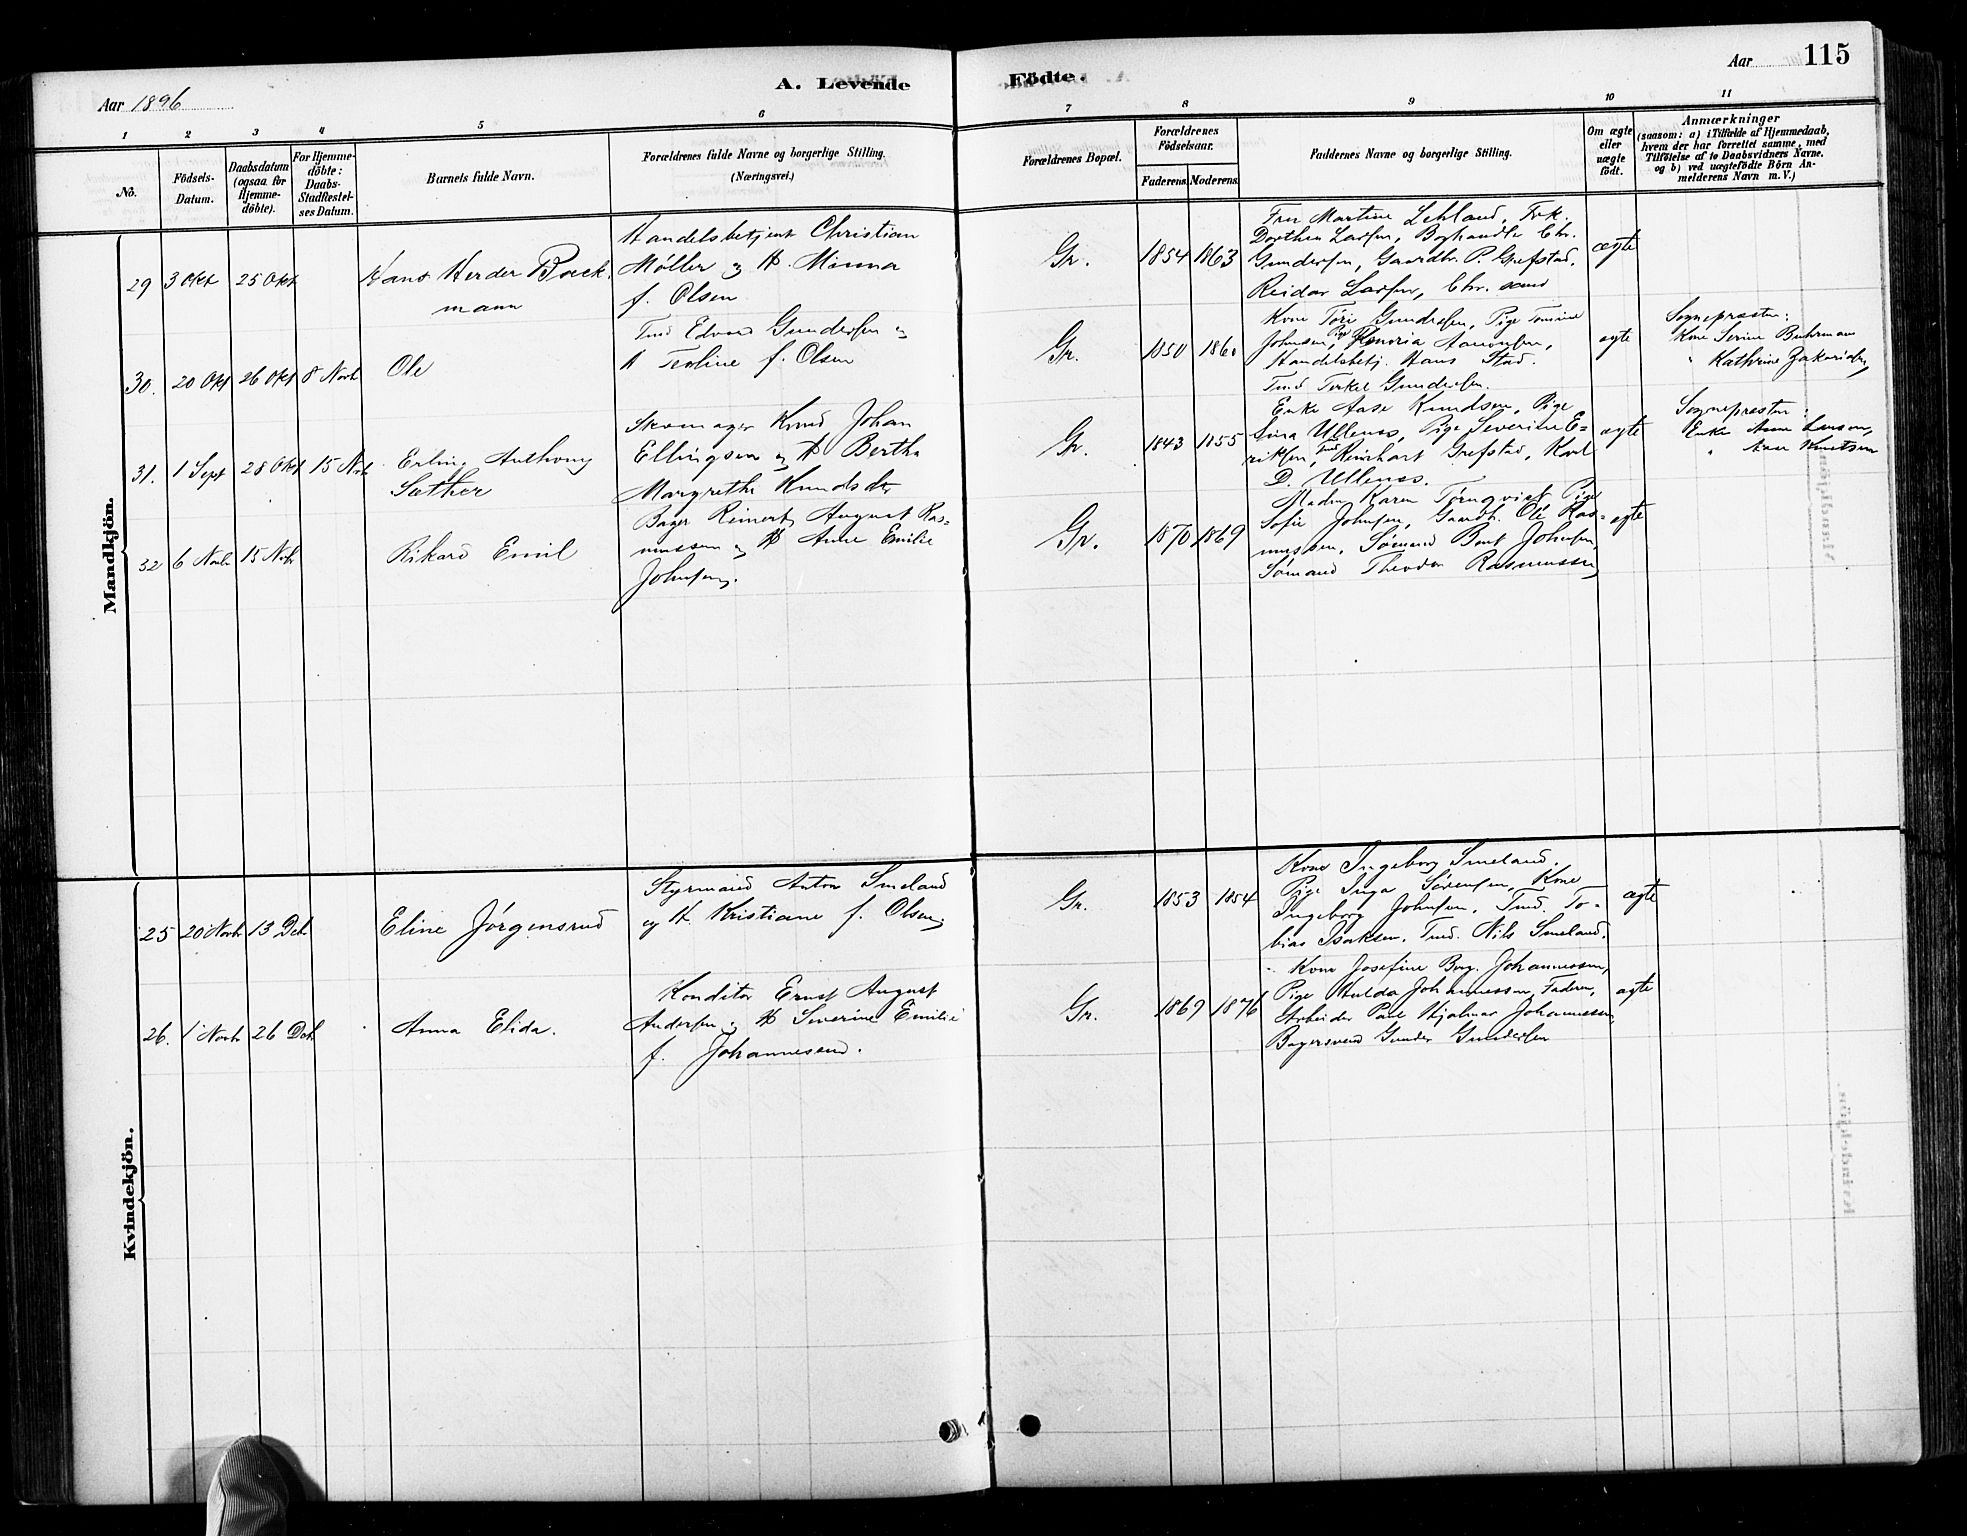 Aar 1896
A. Levende
Födte.
Aar
115
1
2
3
4
5
6
7
8
9
10
11
No.
Födsels-
Datum.
Daabsdatum
(ogsaa for
Hjemme-
döbte).
For Hjemme-
döbte:
Daabs-
Stadfestel-
ses Datum.
Barnets fulde Navn.
Forældrenes fulde Navne og borgerlige Stilling.
(Næringsvei.)
Forældrenes Bopæl.
Forældrenes
Födselsaar.
Faderens.
Moderens.
Faddernes Navne og borgerlige Stilling.
Om ægte
eller
uægte
födt.
Anmærkninger
(saasom: a) i Tilfælde af Hjemmedaab,
hvem der har forrettet samme, med
Tilföielse af to Daabsvidners Navne.
og b) ved uægtefödte Börn An-
melderens Navn m. V.)
Mandkjön.
29
3 Okt
25 Okt
Hans Herder Boek
mann
Handelsbetjent Christian
Møller og H. Minna
f. Olsen
Gr.
1854
1863
Fru Martine Lehland, Frk.
Dorthea Larsen, Boghandler Chr.
Gundersen, Gaardbr. P. Grefstad.
Reidar Larsen, Chr. sand
ægte
30.
20 Okt
26 Okt
8 Novb
Ole
Tmd Edvard Gundersen og
H Teoline f. Olsen
Gr.
1850
1860
Kone Tori Gundersen, Pige Tomine
Johnsen, Pige Honoria Aanonsen,
Handelsbetj. Hans Stad.
Tmd Terkel Gundersen.
ægte
Sognepræsten:
Kone Serine Buhrman
" Kathrine Zakariasen
31.
1 Sept
28 Okt
15 Nvb
Erling Anthony
Sæther
Skomager Knud Johan
Ellingsen og H Bertha
Margrethe Knudsdtr
Gr.
1843
1855
Enke Aase Knudsen, Pige
Sina Ullenes, Pige Severine E-
riksen, Tmd Reinhart Grefstad, Karl
D. Ullenes.
ægte
Sognepræsten:
Enke Anne Larsen,
" Aase Knutsen
32
6 Novbr
15 Novbr
Rikard Emil
Bager Reinert August Ras-
mussen og H Anne Emilie
Johnsen.
Gr.
1870
1869
Madm Karen Tørnqvist, Pige
Sofie Johnsen, Gaardb. Ole Ras-
mussen, Sømand Bent Johnsen,
Sømand Theodor Rasmussen
ægte
Kvindekjön.
25
20 Novbr
13 Deb
Eline Jørgensrud
Styrmand Anton Smeland
og H Kristiane f. Olsen
Gr.
1853
1854
Kone Ingeborg Smeland.
Pige Inga Sørensen, Kone
Ingeborg Johnsen, Tmd. To-
bias Isaksen. Tmd. Nils Smeland.
ægte
26.
1 Novbr
26 Deb
Anna Elida.
Konditor Ernst August
Andersen og H Severine Emilie
f. Johannesend.
Gr.
1869
1876
Kone Josefine Berg. Johannessen,
Pige Hulda Johannessen, Faderen,
Arbeider Paul Hjalmar Johannessen,
Bagersvend Gunder Gundersen
ægte